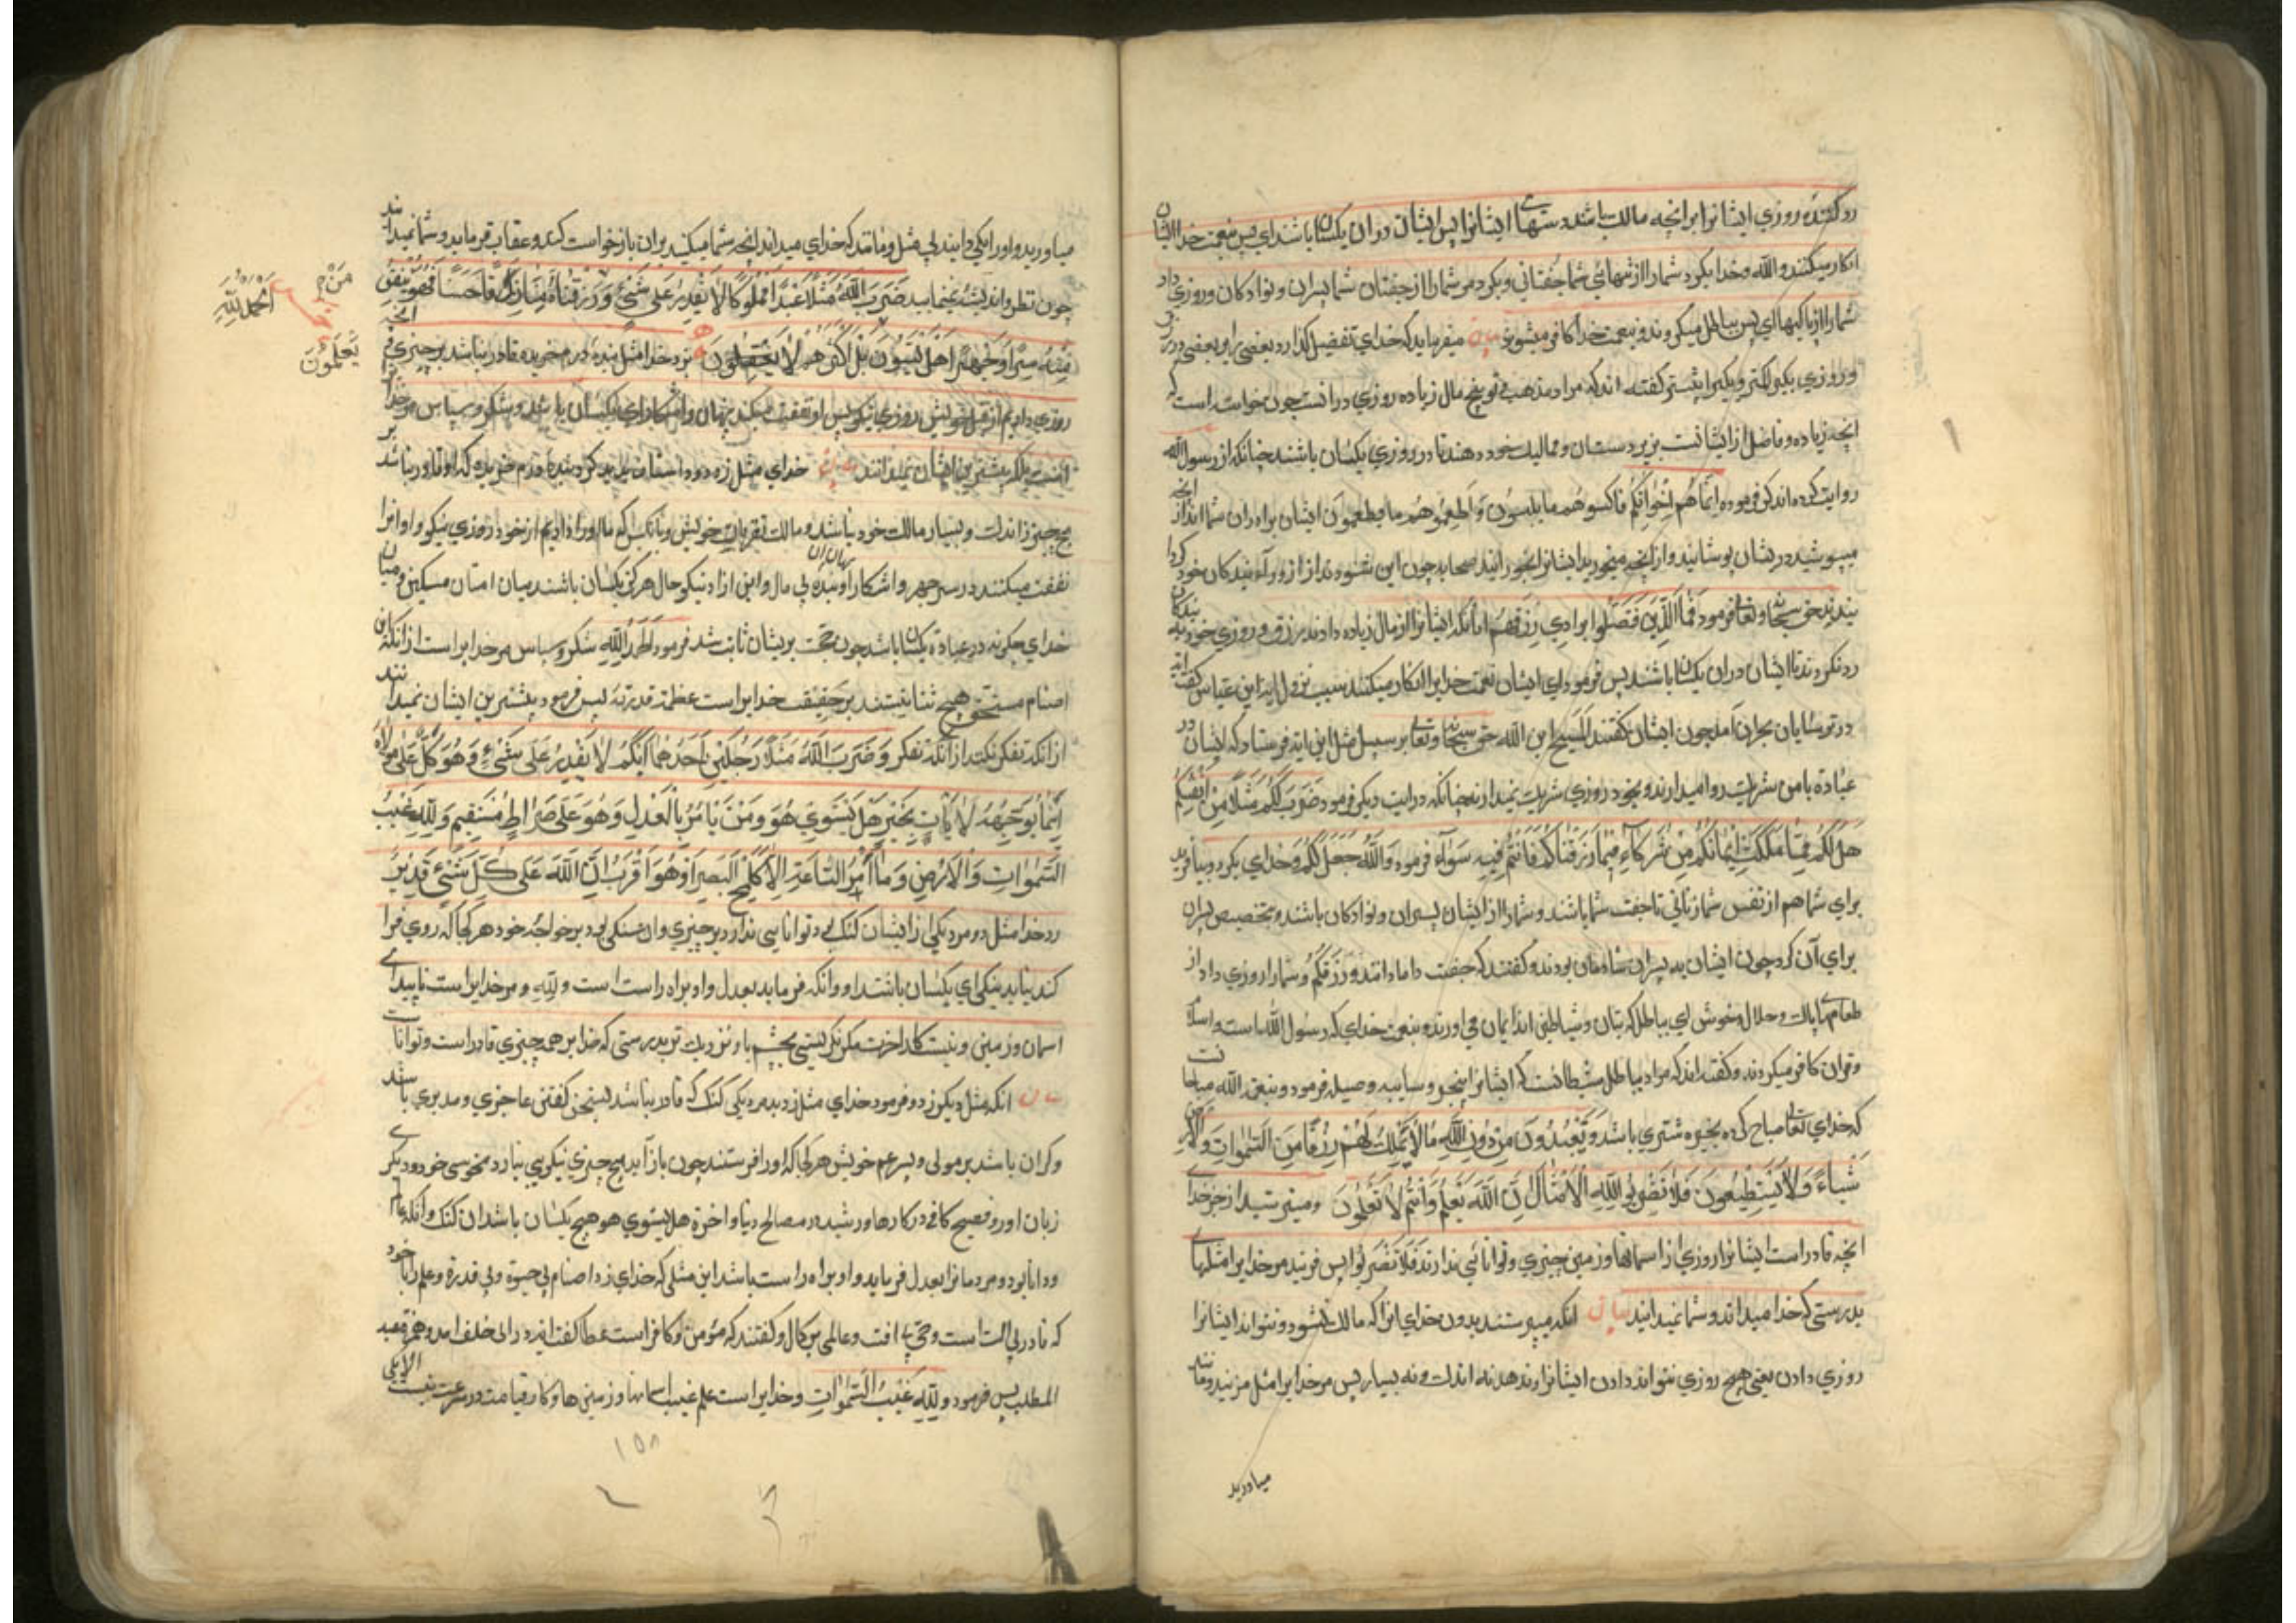 رد کننده روزی ایشانرا برانچه مالک باشد دستهای ایشانرا پس ایشان دران یکسان باشند ای پس بنعمت خدا ایشان
انکار میکنند والله وخدا بکرد شمارا از تنهائی شما جفتانی وبکرد مر شمارا از جفتان شما پسران ونوادکان وروزی داد
شمارا از پاکیها ای پس بباطل میکروند وبنعمت خدا کافر میشوند بیان میفرماید که خدای تفضیل کذارد بعضی را بر بعضی در رزق
وروزی یکی را کمتر ویکیرا بیشتر کفته اند که مراد مذهب توبیخ مال زیاده روزی درانست چون خواسته است که
انچه زیاده وفاضل از ایشانست بزیر دستان وممالیک خود دهند تا در روزی یکسان باشند چنانکه از رسول الله
روایت کرده اند که فرموده اِنَّما هُم اِخْوانُکُم فاکسوهُم ما یلبسون وَاَطعِموهُم ما یطعمون ایشان براه ران شما اند از انچه
میپوشید دریشان پوشانید واز انچه میخورید ایشانرا بخورانید صحابه چون این شنودند ازار و رداء بندکان خود کردا
نیدند حق سبحانه وتعالی فرمود فَمَا الَّذِينَ فُضِّلُوا بِرَادِّي رِزْقِهِمْ اما انکه ایشانرا از مال زیاده دادند برزق وروزی خود بر بندکان
رد نکردند تا ایشان دران یکسان باشند پس فرمود ای ایشان نعمت خدایرا انکار میکنند بسبب نزول این ابن عباس کفته اند
در ترسایان بحران آمد چون ایشان کفتند المَسیح ابن الله حق سبحانه وتعالی بر سبیل مثل این آیه فرستاد که ایشان در
عبادة با من شریک روا میدارند وبخود روزی شریک نمیدارند چنانکه در ایت دیکر فرمود ضَرَبَ لَکُم مَثَلًا مِنْ اَنْفُسِکُم
هَلْ لَكُمْ مِمَّا مَلَكَتْ أَيْمَانُكُمْ مِنْ شُرَكَاءَ فِيمَا رَزَقْنَاكُمْ فَأَنْتُمْ فِيهِ سَوَاءٌ فرمود وَاللَّهُ جَعَلَ لَكُمْ وخدای بکرد وبیافرید
برای شما هم از نفس شما زنانی تا جفت شما باشند وشمارا از ایشان پسران ونوادکان باشند وتخصیص پسران
برای آن کرد چون ایشان به پسران شادمان بودند وکفتند که جفت دامادانند وَرَزَقَكُمْ وشمارا روزی داد از
طعامهای پاک وحلال وخوش ای بباطل که بتان وشیاطین اند ایمان می آورند وبنعمت خدای که رسول الله است واسلام
وقران کافر میکروند وکفته اند که مراد بباطل شیطانست که ایشانرا ببحیره وسایبه وصیله فرمود وبنعمت الله مباحها
که خدای تعالی مباح کرده بخیره شتری باشد وَيَعْبُدُونَ مِنْ دُونِ اللَّهِ مَا لَا يَمْلِكُ لَهُمْ رِزْقًا مِنَ السَّمٰوَاتِ وَالْأَرْضِ
شَيْئًا وَلَا يَسْتَطِيعُونَ فَلَا تَضْرِبُوا لِلَّهِ الْأَمْثَالَ إِنَّ اللَّهَ يَعْلَمُ وَأَنْتُمْ لَا تَعْلَمُونَ ومیپرستیدند از جز خدای
انچه قادر است ایشانرا روزی از اسمانها وزمین چیزی وتوانائی ندارند فَلَا تَضْرِبُوا پس مزنید مر خدایرا مثلهای
بدرستی که خدا میداند وشما نمیدانید بیان انکه میپرستند بدون خدای انرا که مالک نشود ونتواند ایشانرا
روزی دادن یعنی هیچ روزی نتواند دادن ایشانرا ندهد نه اندک ونه بسیار پس مر خدایرا مثل مزنید ومانند
میاورید
میاورید واورا یکی دانید بی مثل ومانند که خدای میداند انچه شما میکنید بران بازخواست کند وعقاب فرماید وشما نمیدانید
چون نظر واندیشه نمینمایید ضَرَبَ اللَّهُ مَثَلًا عَبْدًا مَمْلُوكًا لَا يَقْدِرُ عَلَى شَيْءٍ وَرَزَقْنَاهُ مِنَّا رِزْقًا حَسَنًا فَهُوَ يُنْفِقُ
مِنْهُ سِرًّا وَجَهْرًا هَلْ يَسْتَوُونَ بَلْ أَكْثَرُهُمْ لَا يَعْقِلُونَ بزد خدا مثل بنده درم خریده قادر نباشد بر چیزی وانچه
مَنْ
اَلْحَمْدُ لِلّٰهِ
یَعْلَمُونَ
روزی دادیم از قبل خویش روزی نیکو پس او نفقت میکند پنهان واشکارا ای یکسان باشند وشکر وسپاس مر خدایرا
است بلکه بیشترین ایشان نمیدانند بیان خدای مثل زده دو اصناف پدید کرد بنده درم خریده که او قادر نباشد بر
هیچ چیز از اندک وبسیار مالک خود نباشد ومالک تقربان خویش وانکس که ما اورا دادیم از خود روزی نیکو واو انرا
نفقت میکنند در سر جهر واشکارا وبنده بی مال واین ازاد نیکو حال هر کز یکسان باشند میان امتان مسکین ومیان
پنهان ان
خدای چکونه در عبادة یکسان باشد چون حجت بریشان ثابت شد فرمود اَلْحَمْدُ لِلّٰهِ شکر وسپاس مر خدایرا است ازانکه این
اصنام مستحق هیچ ثنا نیستند بر حقیقت خدایرا است عظمت قدرته پس فرمود بیشترین ایشان نمیدانند
ازانکه تفکر نکنند ازانکه تفکر وَضَرَبَ اللَّهُ مَثَلًا رَجُلَيْنِ أَحَدُهُمَا أَبْكَمُ لَا يَقْدِرُ عَلَى شَيْءٍ وَهُوَ كَلٌّ عَلَى مَوْلَاهُ
أَيْنَمَا يُوَجِّهْهُ لَا يَأْتِ بِخَيْرٍ هَلْ يَسْتَوِي هُوَ وَمَنْ يَأْمُرُ بِالْعَدْلِ وَهُوَ عَلَى صِرَاطٍ مُسْتَقِيمٍ وَلِلَّهِ غَيْبُ
السَّمٰوَاتِ وَالْأَرْضِ وَمَا أَمْرُ السَّاعَةِ إِلَّا كَلَمْحِ الْبَصَرِ أَوْ هُوَ أَقْرَبُ إِنَّ اللَّهَ عَلَى كُلِّ شَيْءٍ قَدِيرٌ
زد خدا مثل دو مرد یکی از ایشان کنک بود توانایی ندارد بر چیزی وان سنکی بود بر خواجه خود هر کجا که روی فرا
کند نیاید بنیکی ای یکسان باشند او وانکه فرماید بعدل واو براه راست است ولِلّهِ ومر خدایرا است ناپیدای
اسمان وزمین ونیست کار اخرت مکر نکریستنی بچشم یا ونزدیک تر بدرستی که خدا بر همه چیزی قادر است وتوانا
بیان انکه مثل دیکر زد وفرمود خدای مثل زد بدو مرد یکی کنک که قادر نباشد بسخن کفتن عاجزی ومدبری باشد
وکران باشد بر مولی وپسر عم خویش هر کجا که اورا فرستند چون باز آید هیچ چیزی نیکویی نیارد منحوسی خود ودیکری
زبان اور وفصیح کافی در کارها ورشید در مصالح دنیا واخرة هل یستوی هو هیچ یکسان باشد ان کنک وانکه عالم
ودانا بود ومردمانرا بعدل فرماید واو براه راست باشد این مثلی که خدای زد اصنام بی حیوة وبی قدرة وعلم را با خود
که قادر بی الت است وحی بی افت وعالمی بر کمال وکفتند که مؤمن وکافر است عطا کفت اندر در ابی خلف امد وحمزه وعبد
المطلب پس فرمود ولِلّهِ غَيْبُ السَّمٰوَاتِ وخدایرا است علم غیب اسمانها وزمین ها وکار قیامت در سرعت نیست الا یکی
۱۵۸